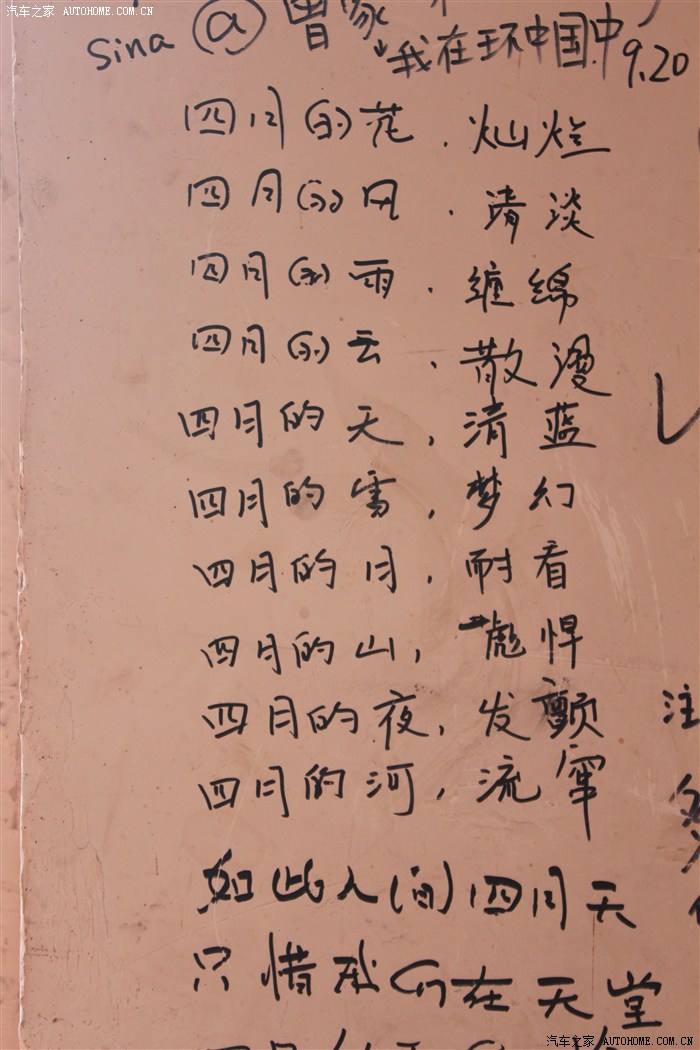 汽车之家 AUTOHOME.COM.CN
sina @曾家
我在环中国.中 9.20
四月的花.灿烂
四月的风.清淡
四月的雨.缠绵
四月的云.散漫
四月的天,清蓝
四月的雪,梦幻
四月的月,耐看
四月的山,彪悍
四月的夜,发颤
四月的河,流窜
注
如此人间四月天
只惜我们在天堂
汽车之家 AUTOHOME.COM.CN